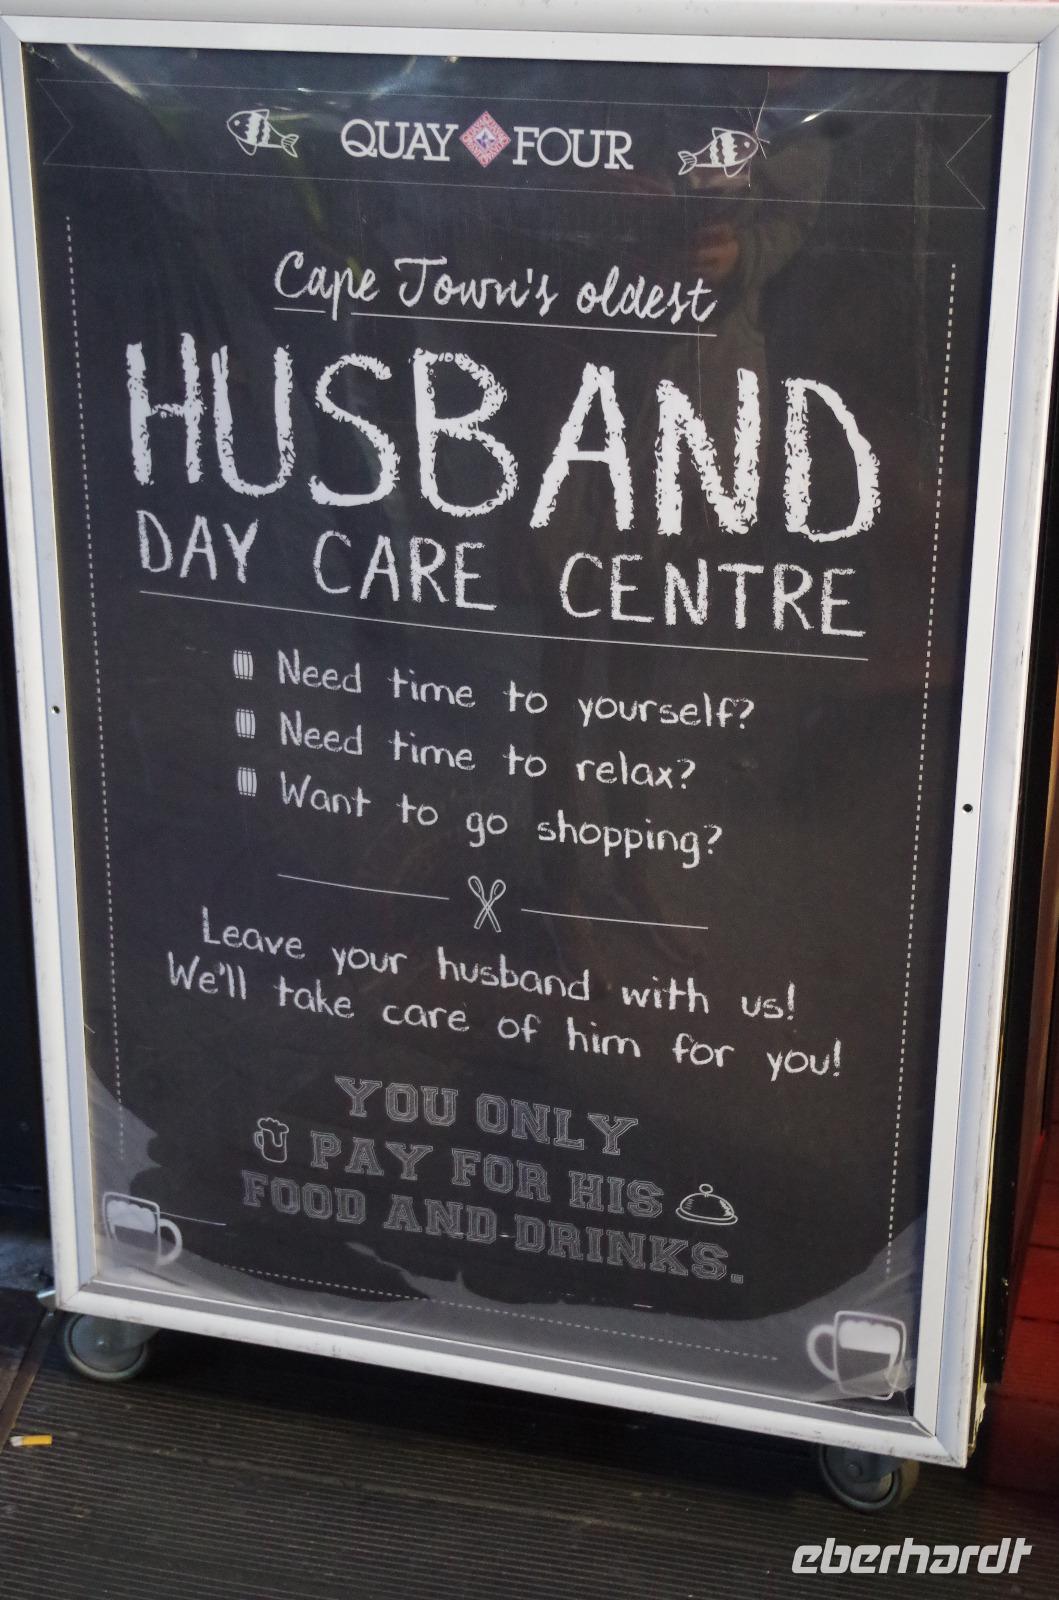 QUAY FOUR
Cape Town's oldest
HUSBAND
DAY CARE CENTRE
Need time to yourself?
Need time to relax?
Want to go shopping?
Leave your husband with us!
We'll take care of him for you!
YOU ONLY
PAY FOR HIS
FOOD AND DRINKS.
eberhardt